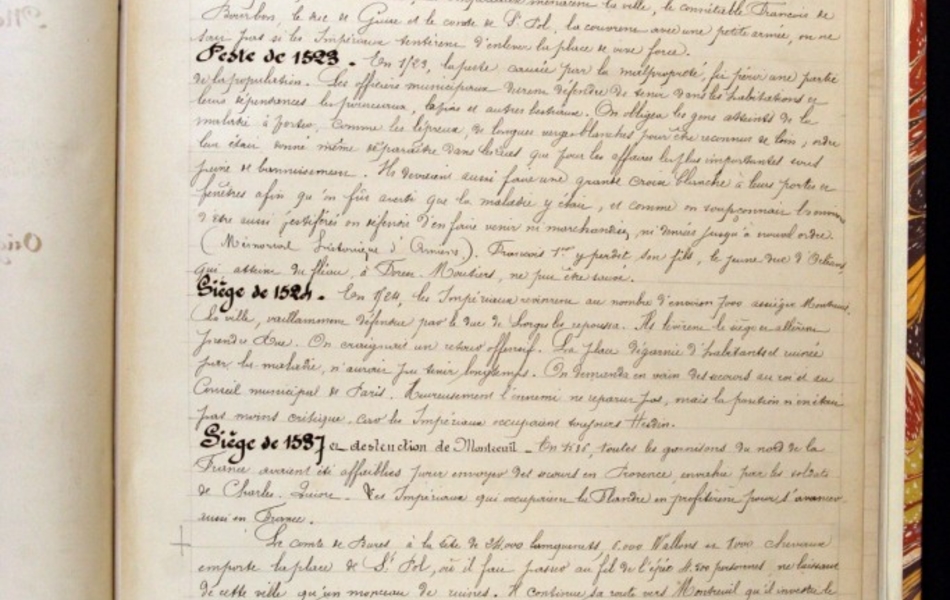 menacèrent la ville, le connétable François de
Bourbon, le duc de Guise et le comte de St Pol, la couvrent avec une petite armée, on ne
sait pas si les Impériaux tentèrent d'enlever la place de vive force.
Peste de 1523. En 1523, la peste causée par la malpropreté, fit périr une partie
de la population. Les officiers municipaux durent défendre de tenir dans les habitations et
leurs dépendances les pourceaux, lapins et autres bestiaux. On obligea les gens atteints de la
maladie à porter, comme les lépreux, de longues verges blanches pour être reconnus de loin; ordre
leur était donné même de paraître dans les rues que pour les affaires les plus importantes sous
peine de bannissement. Ils devaient aussi faire une grande croix blanche à leurs portes et
fenêtres afin qu'on fût averti que la maladie y était, et comme on soupçonnait
d'être aussi pestiférés on défendit d'en faire venir ni marchandises, ni denrées jusqu'à nouvel ordre.
(Mémorial historique d'Amiens). François 1er y perdit son fils, le jeune duc d'Orléans,
qui atteint du fléau, à Forest-Moutiers, ne put être sauvé.
Siège de 1524. En 1524, les Impériaux revinrent au nombre d'environ 7000 assiéger Montreuil.
La ville, vaillamment défendue par le duc de les repoussa. Ils levèrent le siège et allèrent
prendre Rue. On craignait un retour offensif. La place dégarnie d'habitants et ruinée
par la maladie, n'aurait pu tenir longtemps. On demanda en vain des secours au roi et au
Conseil municipal de Paris. Heureusement l'ennemi ne reparut pas, mais la position n'en était
pas moins critique, car les Impériaux occupaient toujours Hesdin.
Siège de 1537 et destruction de Montreuil - En 1536, toutes les garnisons du nord de la
France avaient été affaiblies pour envoyer des secours en Provence, envahie par les soldats
de Charles-Quint. Les Impériaux qui occupaient la Flandre en profitèrent pour s'avancer
aussi en France.
Le comte de Bures, à la tête de 24,000 lansquenets, 6.000 Wallons et 8000 chevaux
emporte la place de St Pol, où il fait passer au fil de l'épée 4.500 personnes ne laissant
de cette ville qu'un monceau de ruines. Il continue sa route vers Montreuil qu'il investit le